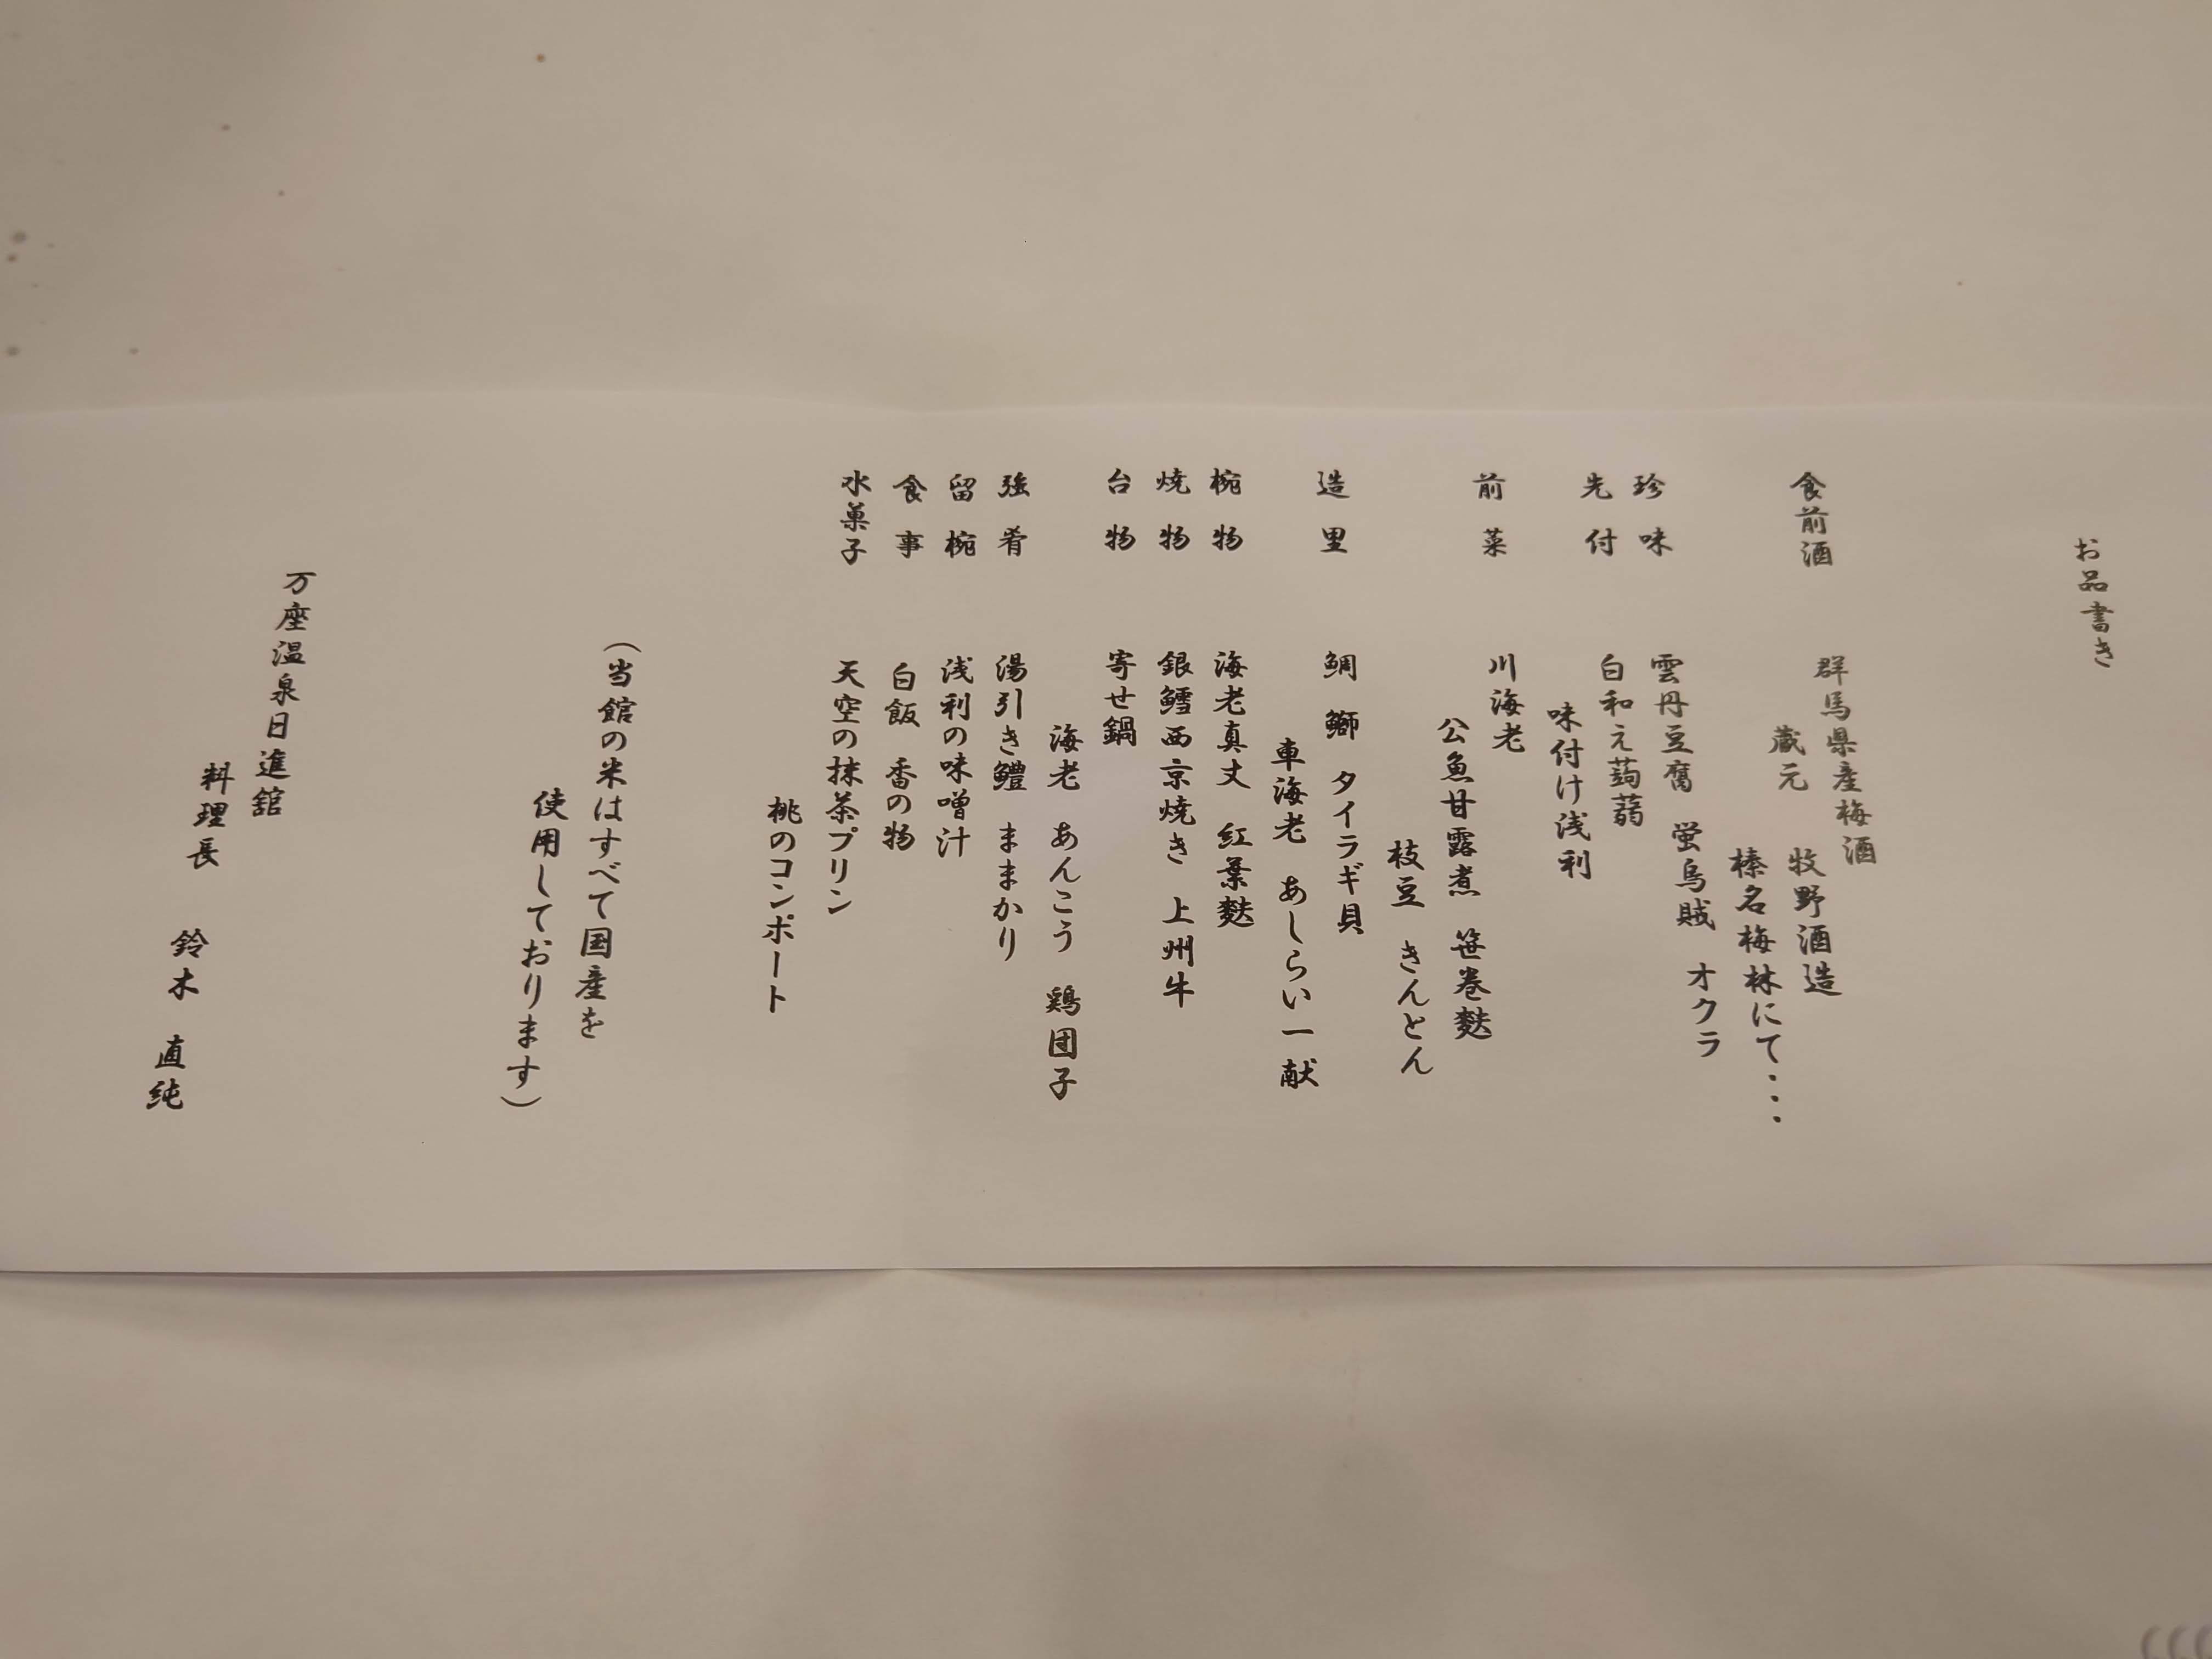 お品書き
食前酒 群馬県産梅酒
蔵元 牧野酒造
榛名梅林にて・・・
珍味 雲丹豆腐 蛍烏賊 オクラ
先付 白和え蒟蒻
味付け浅利
前菜 川海老
公魚甘露煮 笹巻麩
枝豆 きんとん
造里 鯛 鰤 タイラギ貝
車海老 あしらい一献
椀物 海老真丈 紅葉麩
焼物 銀鱈西京焼き 上州牛
台物 寄せ鍋
海老 あんこう 鶏団子
強肴 湯引き鱧 ままかり
留椀 浅利の味噌汁
食事 白飯 香の物
水菓子 天空の抹茶プリン
桃のコンポート
(当館の米はすべて国産を
使用しております)
万座温泉日進舘
料理長 鈴木 直純